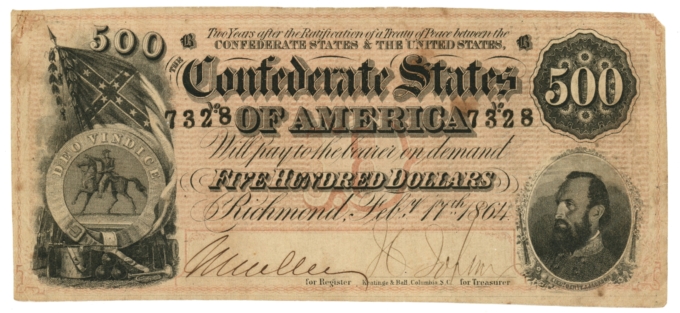 500
B
Two Years after the Ratification of a Treaty of Peace between the
B
CONFEDERATE STATES & THE UNITED STATES,
THE
Confederate States
500
No 7328
OF AMERICA
No 7328
DEO VINDICE
Will pay to the bearer on demand
FIVE HUNDRED DOLLARS
Richmond, Feb.y 17th 1864
for Register
Keatinge & Ball, Columbia S.C.
for Treasurer